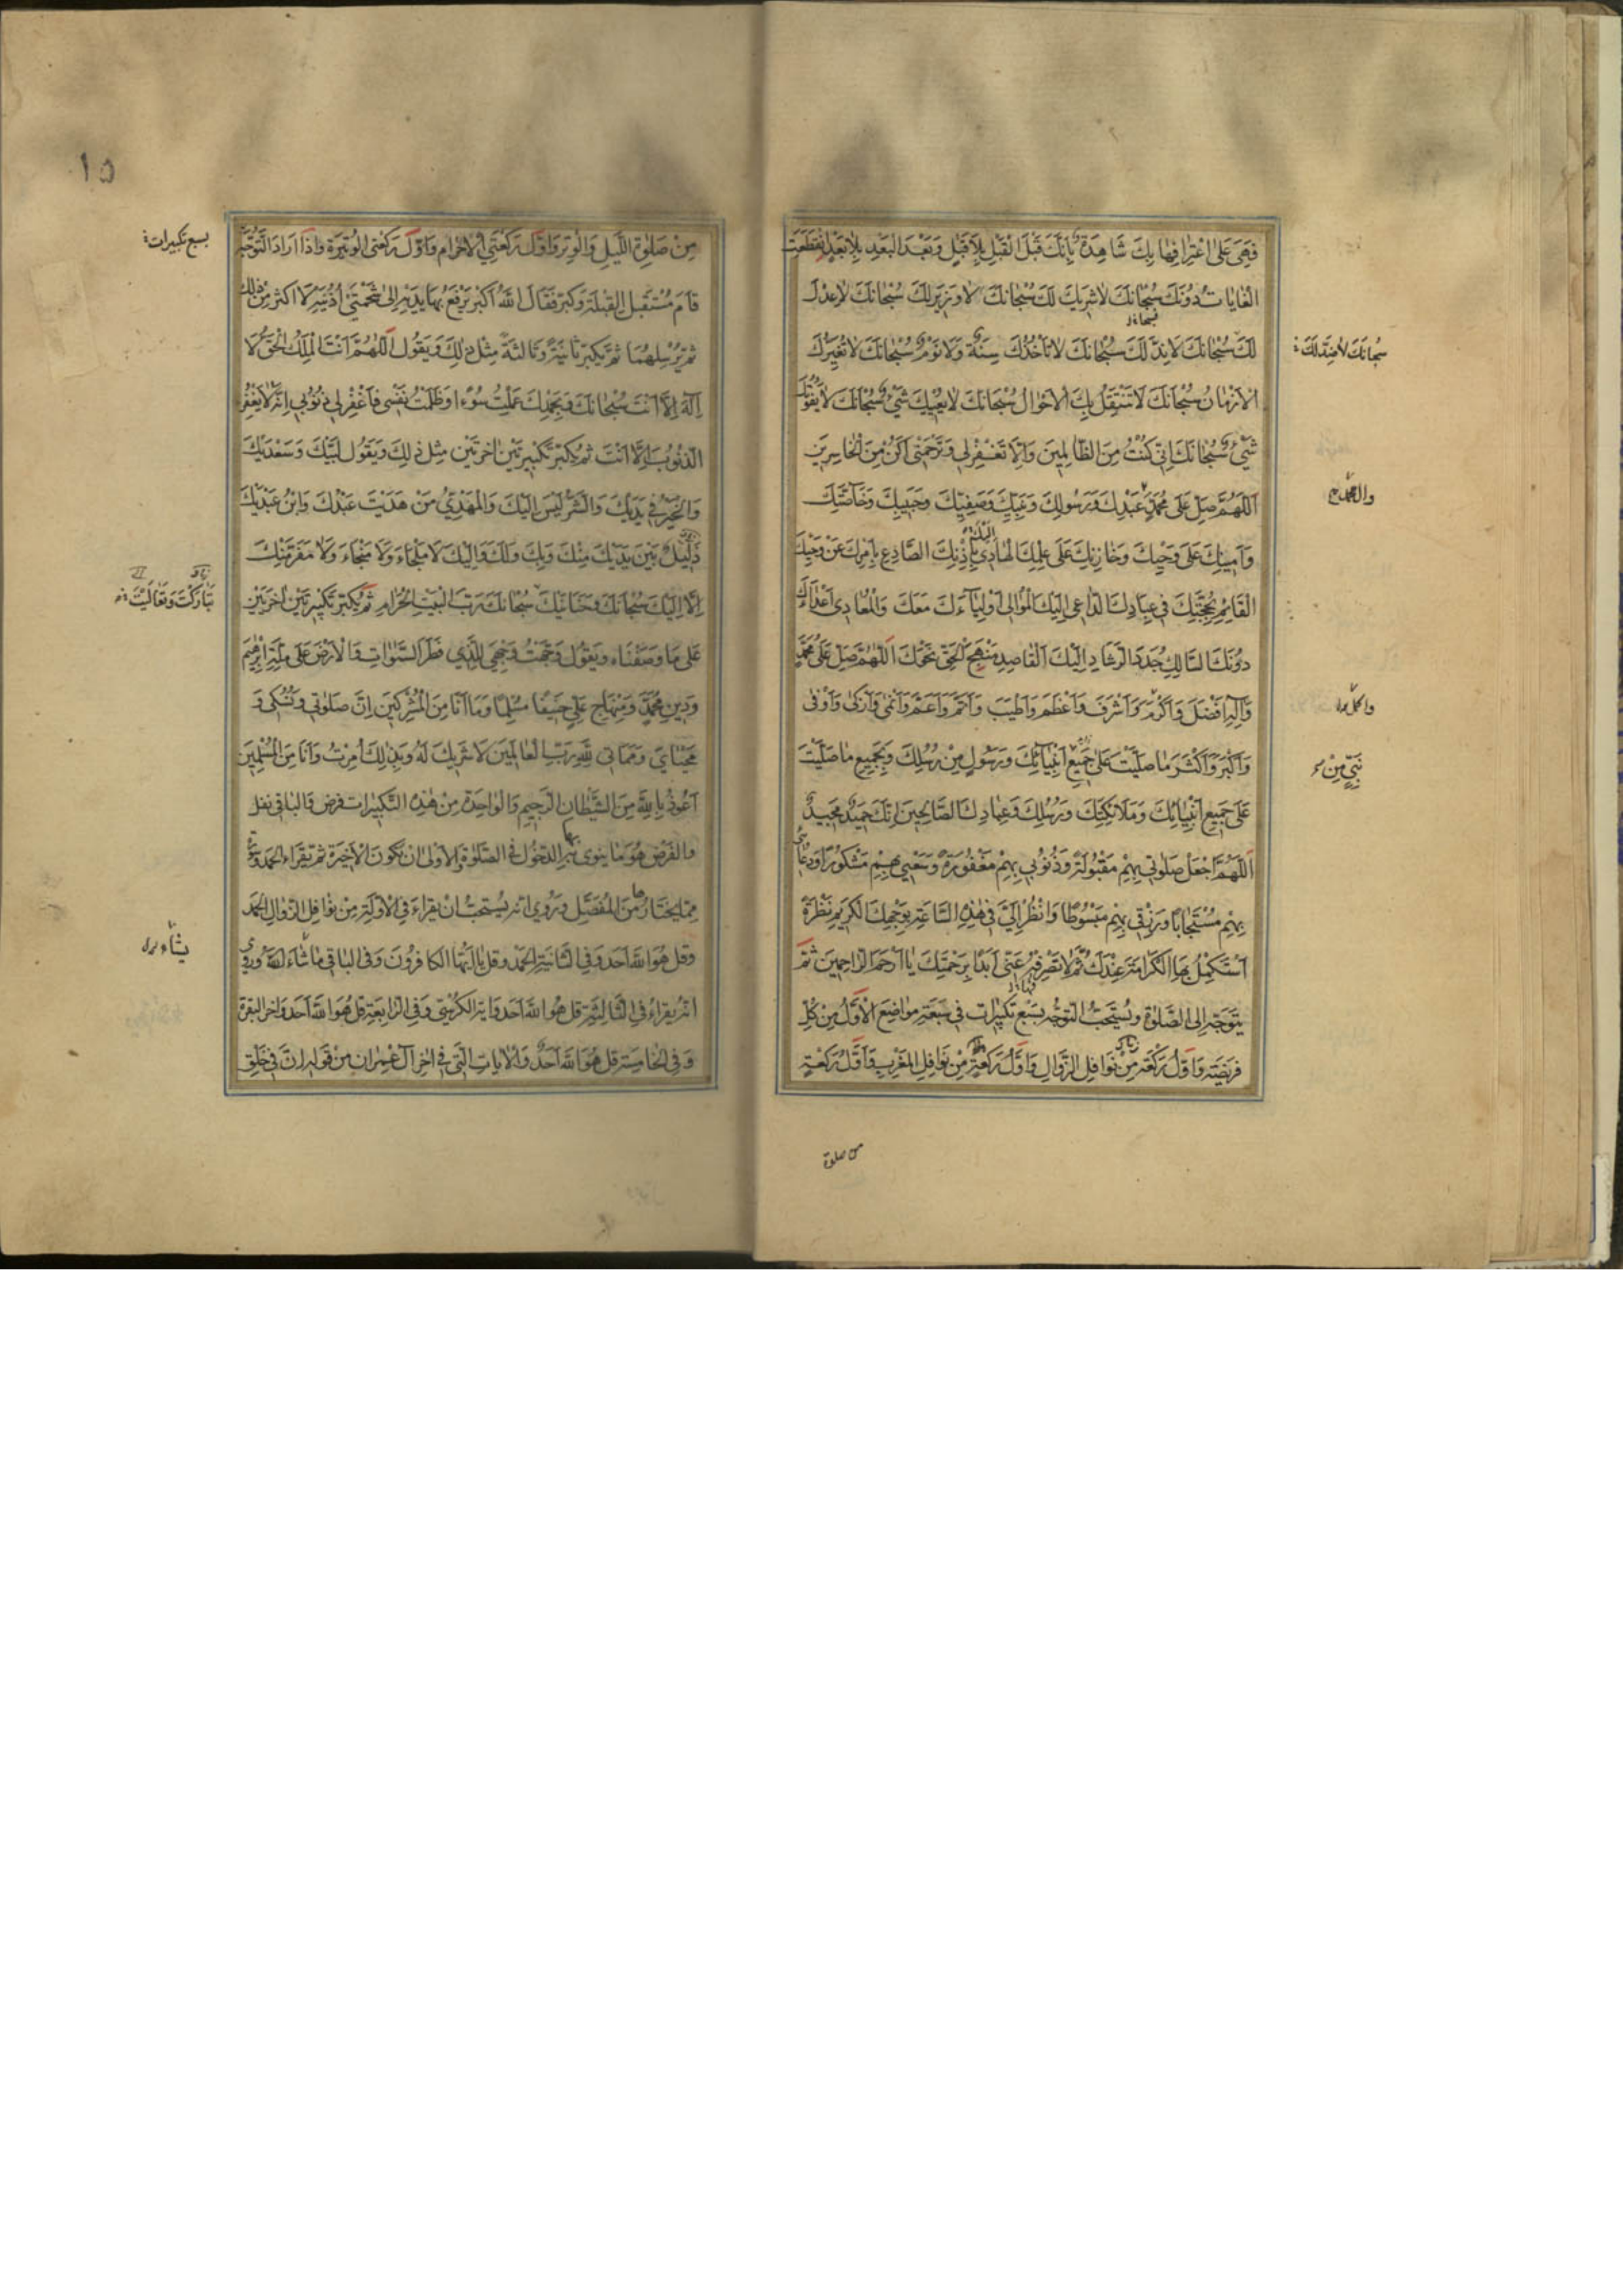 فَهِيَ عَلَى اعْتِرافِهَا بِكَ شَاهِدَةٌ بِاَنَّكَ قَبْلَ الْقَبْلِ بِلاَ قَبْلٍ وَبَعْدَ الْبَعْدِ بِلاٰ بَعْدٍ انْقَطَعَتِ
الْغَايَاتُ دُونَكَ سُبْحَانَكَ لاٰ شَرِيكَ لَكَ سُبْحَانَكَ لاٰ وَزِيرَ لَكَ سُبْحَانَكَ لاٰ عِدْلَ
لَكَ سُبْحَانَكَ لاٰ نِدَّ لَكَ سُبْحَانَكَ لاٰ تَأْخُذُكَ سِنَةٌ وَلاٰ نَوْمٌ سُبْحَانَكَ لاٰ تُغَيِّرُكَ
سُبْحَانَكَ لاٰ ضِدَّ لَكَ
الْاَزْمَانُ سُبْحَانَكَ لاٰ تَنْتَقِلُ بِكَ الْاَحْوَالُ سُبْحَانَكَ لاٰ يُعْيِيكَ شَيْءٌ سُبْحَانَكَ لاٰ يَفُوتُكَ
شَيْءٌ سُبْحَانَكَ اِنِّي كُنْتُ مِنَ الظَّالِمِينَ وَاِلاَّ تَغْفِرْ لِي وَتَرْحَمْنِي اَكُنْ مِنَ الْخَاسِرِينَ
اَللّٰهُمَّ صَلِّ عَلَى مُحَمَّدٍ عَبْدِكَ وَرَسُولِكَ وَنَبِيِّكَ وَصَفِيِّكَ وَحَبِيبِكَ وَخَاصَّتِكَ
وال محمد
وَاَمِينِكَ عَلَى وَحْيِكَ وَخَازِنِكَ عَلَى عِلْمِكَ الْهَادِي بِاِذْنِكَ الصَّادِعِ بِاَمْرِكَ عَنْ وَحْيِكَ
الْقَائِمِ بِحُجَّتِكَ فِي عِبَادِكَ الدَّاعِي اِلَيْكَ الْمُوَالِي اَوْلِيَآءَكَ مَعَكَ وَالْمُعَادِي اَعْدَاءَكَ
دُونَكَ السَّالِكِ جُدَدَ الرَّشَادِ اِلَيْكَ الْقَاصِدِ مَنْهَجَ الْحَقِّ نَحْوَكَ اَللّٰهُمَّ صَلِّ عَلَى مُحَمَّدٍ
وَآلِهِ اَفْضَلَ وَاَكْرَمَ وَاَشْرَفَ وَاَعْظَمَ وَاَطْيَبَ وَاَتَمَّ وَاَعَمَّ وَاَنْمٰى وَاَزْكٰى وَاَوْفٰى
واكمل
وَاَكْبَرَ وَاَكْثَرَ مَا صَلَّيْتَ عَلَى جَمِيعِ اَنْبِيَآئِكَ وَرَسُولٍ مِنْ رُسُلِكَ وَبِجَمِيعِ مَا صَلَّيْتَ
نَبِيٍّ مِنْ
عَلَى جَمِيعِ اَنْبِيَائِكَ وَمَلاٰئِكَتِكَ وَرُسُلِكَ وَعِبَادِكَ الصَّالِحِينَ اِنَّكَ حَمِيدٌ مَجِيدٌ
اَللّٰهُمَّ اجْعَلْ صَلٰوتِي بِهِمْ مَقْبُولَةً وَذُنُوبِي بِهِمْ مَغْفُورَةً وَسَعْيِي بِهِمْ مَشْكُورًا وَدُعَائِي
بِهِمْ مُسْتَجَابًا وَرِزْقِي بِهِمْ مَبْسُوطًا وَانْظُرْ اِلَيَّ فِي هٰذِهِ السَّاعَةِ بِوَجْهِكَ الْكَرِيمِ نَظْرَةً
اَسْتَكْمِلُ بِهَا الْكَرَامَةَ عِنْدَكَ ثُمَّ لاٰ تَصْرِفْهُ عَنِّي اَبَدًا بِرَحْمَتِكَ يَا اَرْحَمَ الرَّاحِمِينَ ثُمَّ
يَتَوَجَّهُ اِلَى الصَّلوٰةِ وَيُسْتَحَبُّ التَّوَجُّهُ بِسَبْعِ تَكْبِيرَاتٍ فِي سَبْعَةِ مَوَاضِعَ الْاَوَّلُ مِنْ كُلِّ
فَرِيضَةٍ وَاَوَّلُ رَكْعَةٍ مِنْ نَوَافِلِ الزَّوَالِ وَاَوَّلُ رَكْعَةٍ مِنْ نَوَافِلِ الْمَغْرِبِ وَاَوَّلُ رَكْعَةٍ
من صلوة
١٥
مِنْ صَلٰوةِ اللَّيْلِ وَالْوِتْرِ وَاَوَّلُ رَكْعَتَيِ الْاِحْرَامِ وَاَوَّلُ رَكْعَتَيِ الْوُتَيْرَةِ وَاِذَا اَرَادَ التَّوَجُّهَ
بسبع تكبيرات
قَامَ مُسْتَقْبِلَ الْقِبْلَةِ وَكَبَّرَ فَقَالَ اَللّٰهُ اَكْبَرُ يَرْفَعُ بِهَا يَدَيْهِ اِلَى شَحْمَتَيْ اُذُنَيْهِ لاٰ اَكْثَرَ مِنْ ذٰلِكَ
ثُمَّ يُرْسِلُهُمَا ثُمَّ يُكَبِّرُ ثَانِيَةً وَثَالِثَةً مِثْلَ ذٰلِكَ وَيَقُولُ اَللّٰهُمَّ اَنْتَ الْمَلِكُ الْحَقُّ لاٰ
اِلٰهَ اِلاَّ اَنْتَ سُبْحَانَكَ وَبِحَمْدِكَ عَمِلْتُ سُوْءًا وَظَلَمْتُ نَفْسِي فَاغْفِرْ لِي ذُنُوبِي اِنَّهُ لاٰ يَغْفِرُ
الذُّنُوبَ اِلاَّ اَنْتَ ثُمَّ يُكَبِّرُ تَكْبِيرَتَيْنِ اُخْرَتَيْنِ مِثْلَ ذٰلِكَ وَيَقُولُ لَبَّيْكَ وَسَعْدَيْكَ
وَالْخَيْرُ فِي يَدَيْكَ وَالشَّرُّ لَيْسَ اِلَيْكَ وَالْمَهْدِيُّ مَنْ هَدَيْتَ عَبْدُكَ وَابْنُ عَبْدَيْكَ
ذَلِيلٌ بَيْنَ يَدَيْكَ مِنْكَ وَبِكَ وَلَكَ وَاِلَيْكَ لاٰ مَلْجَاءَ وَلاٰ مَنْجَاءَ وَلاٰ مَفَرَّ مِنْكَ
اِلاَّ اِلَيْكَ سُبْحَانَكَ وَحَنَانَيْكَ سُبْحَانَكَ رَبَّ الْبَيْتِ الْحَرَامِ ثُمَّ يُكَبِّرُ تَكْبِيرَتَيْنِ اُخْرَتَيْنِ
تَبَارَكْتَ وَتَعَالَيْتَ
عَلَى مَا وَصَفْنَاهُ وَيَقُولُ وَجَّهْتُ وَجْهِيَ لِلَّذِي فَطَرَ السَّمٰوَاتِ وَالْاَرْضَ عَلَى مِلَّةِ اِبْرٰهِيمَ
وَدِينِ مُحَمَّدٍ وَمِنْهَاجِ عَلِيٍّ حَنِيفًا مُسْلِمًا وَمَا اَنَا مِنَ الْمُشْرِكِينَ اِنَّ صَلٰوتِي وَنُسُكِي وَ
مَحْيَايَ وَمَمَاتِي لِلّٰهِ رَبِّ الْعَالَمِينَ لاٰ شَرِيكَ لَهُ وَبِذٰلِكَ اُمِرْتُ وَاَنَا مِنَ الْمُسْلِمِينَ
اَعُوذُ بِاللّٰهِ مِنَ الشَّيْطَانِ الرَّجِيمِ وَالْوَاحِدَةُ مِنْ هٰذِهِ التَّكْبِيرَاتِ فرض وَالْبَاقِي نفل
وَالْفَرْضُ هُوَ مَا يَنْوِي بِهِ الدُّخُولَ فِي الصَّلٰوةِ وَالْاَوْلَى اَنْ يَكُونَ الْاَخِيرَةَ ثُمَّ يَقْرَاُ الْحَمْدَ وَسُورَةً
مِمَّا يَخْتَارُهَا مِنَ الْمُفَصَّلِ وَرُوِيَ اَنَّهُ يُسْتَحَبُّ اَنْ يَقْرَاءَ فِي الْاَوَّلَةِ مِنْ نَوَافِلِ الزَّوَالِ الْحَمْدَ
وَقُلْ هُوَ اللّٰهُ اَحَدٌ وَفِي الثَّانِيَةِ الْحَمْدَ وَقُلْ يَا اَيُّهَا الْكَافِرُونَ وَفِي الْبَاقِي مَا شَاءَ اللّٰهُ وَرُوِيَ
يشاء
اَنَّهُ يَقْرَاءُ فِي الثَّالِثَةِ قُلْ هُوَ اللّٰهُ اَحَدٌ وَآيَةَ الْكُرْسِيِّ وَفِي الرَّابِعَةِ قُلْ هُوَ اللّٰهُ اَحَدٌ وَآخِرَ الْبَقَرَةِ
وَفِي الْخَامِسَةِ قُلْ هُوَ اللّٰهُ اَحَدٌ وَالْاٰيَاتِ الَّتِي فِي اٰخِرِ اٰلِ عِمْرَانَ مِنْ قَوْلِهِ اِنَّ فِي خَلْقِ